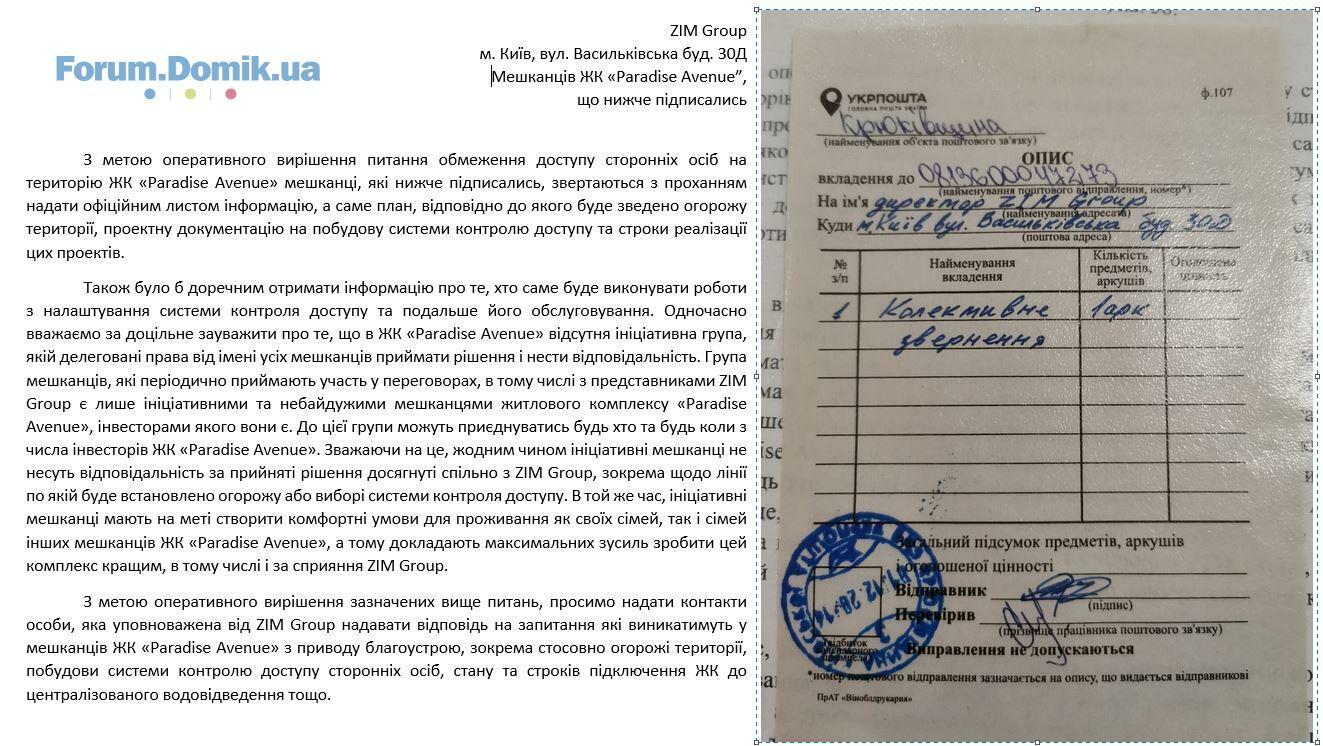 Forum.Domik.ua
ZIM Group
м. Київ, вул. Васильківська буд. 30Д
Мешканців ЖК «Paradise Avenue”,
що нижче підписались
З метою оперативного вирішення питання обмеження доступу сторонніх осіб на
територію ЖК «Paradise Avenue» мешканці, які нижче підписались, звертаються з проханням
надати офіційним листом інформацію, а саме план, відповідно до якого буде зведено огорожу
території, проектну документацію на побудову системи контролю доступу та строки реалізації
цих проектів.
Також було б доречним отримати інформацію про те, хто саме буде виконувати роботи
з налаштування системи контроля доступу та подальше його обслуговування. Одночасно
вважаємо за доцільне зауважити про те, що в ЖК «Paradise Avenue» відсутня ініціативна група,
якій делеговані права від імені усіх мешканців приймати рішення і нести відповідальність. Група
мешканців, які періодично приймають участь у переговорах, в тому числі з представниками ZIM
Group є лише ініціативними та небайдужими мешканцями житлового комплексу «Paradise
Avenue», інвесторами якого вони є. До цієї групи можуть приєднуватись будь хто та будь коли з
числа інвесторів ЖК «Paradise Avenue». Зважаючи на це, жодним чином ініціативні мешканці не
несуть відповідальність за прийняті рішення досягнуті спільно з ZIM Group, зокрема щодо лінії
по якій буде встановлено огорожу або виборі системи контроля доступу. В той же час, ініціативні
мешканці мають на меті створити комфортні умови для проживання як своїх сімей, так і сімей
інших мешканців ЖК «Paradise Avenue», а тому докладають максимальних зусиль зробити цей
комплекс кращим, в тому числі і за сприяння ZIM Group.
З метою оперативного вирішення зазначених вище питань, просимо надати контакти
особи, яка уповноважена від ZIM Group надавати відповідь на запитання які виникатимуть у
мешканців ЖК «Paradise Avenue» з приводу благоустрою, зокрема стосовно огорожі території,
побудови системи контролю доступу сторонніх осіб, стану та строків підключення ЖК до
централізованого водовідведення тощо.
УКРПОШТА
ф.107
Крюківщина
(найменування об'єкта поштового зв'язку)
ОПИС
вкладення до 0813600047273
(найменування поштового відправлення, номер*)
На ім'я директор ZIM Group
(найменування адресата)
Куди м. Київ вул. Васильківська буд 30Д
(поштова адреса)
№ з/п
Найменування вкладення
Кількість предметів, аркушів
Оголошена цінність
1 Колективне 1 арк
звернення
Загальний підсумок предметів, аркушів
і оголошеної цінності
Відправник
(підпис)
Перевірив
(прізвище працівника поштового зв'язку)
Виправлення не допускаються
*номер поштового відправлення зазначається на описі, що видається відправникові
ПрАТ «Віноблдрукарня»